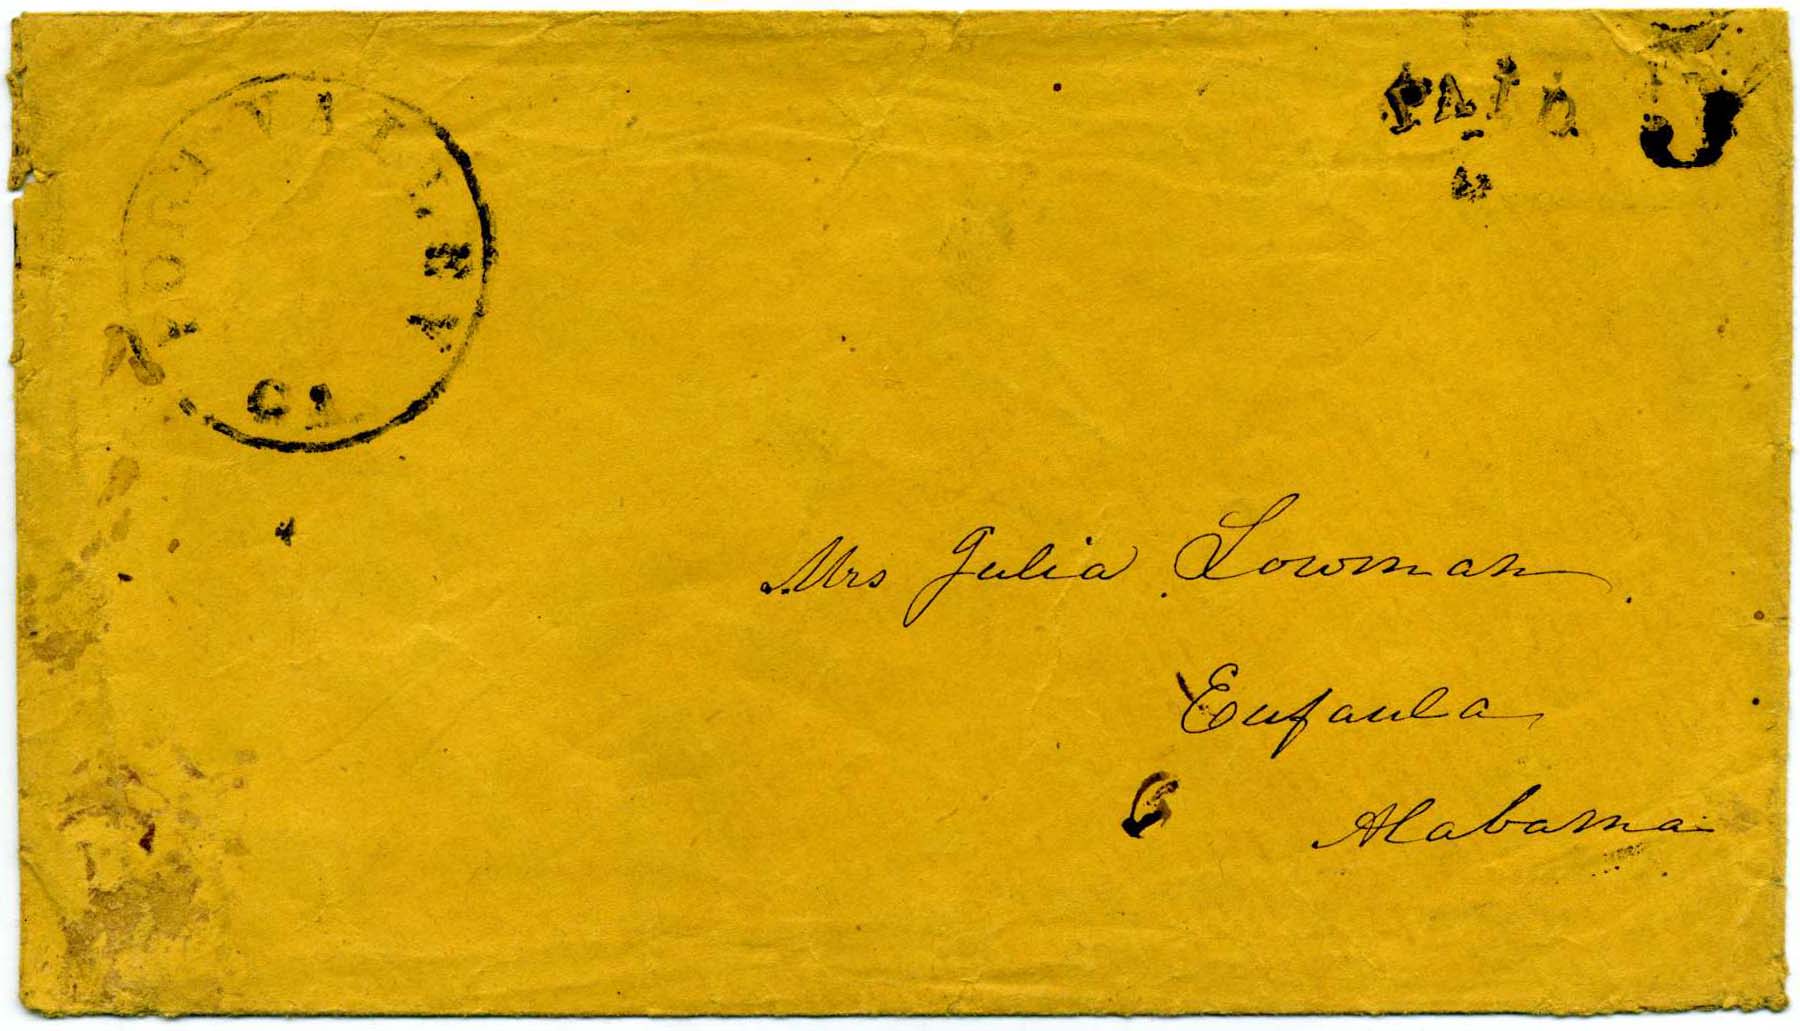 FORT VALLEY
GA
PAID 5
Mrs Julia Lowman
Eufaula
Alabama